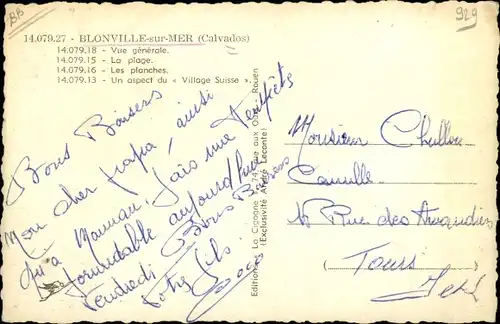 BB
929
14.079.27 - BLONVILLE-sur-MER (Calvados)
14.079.18 - Vue générale.
14.079.15 - La plage.
14.079.16 - Les planches.
14.079.13 - Un aspect du « Village Suisse ».
Bons Baisers
Mon cher papa, ainsi
qu'à Maman, fais une
formidable aujourd'hui
Vendredi Bons Baisers
Votre fils
Editions La Cigogne 74 rue aux Ours, Rouen
(Exclusivité André Leconte)
Monsieur
Camille
Rue des
Tours